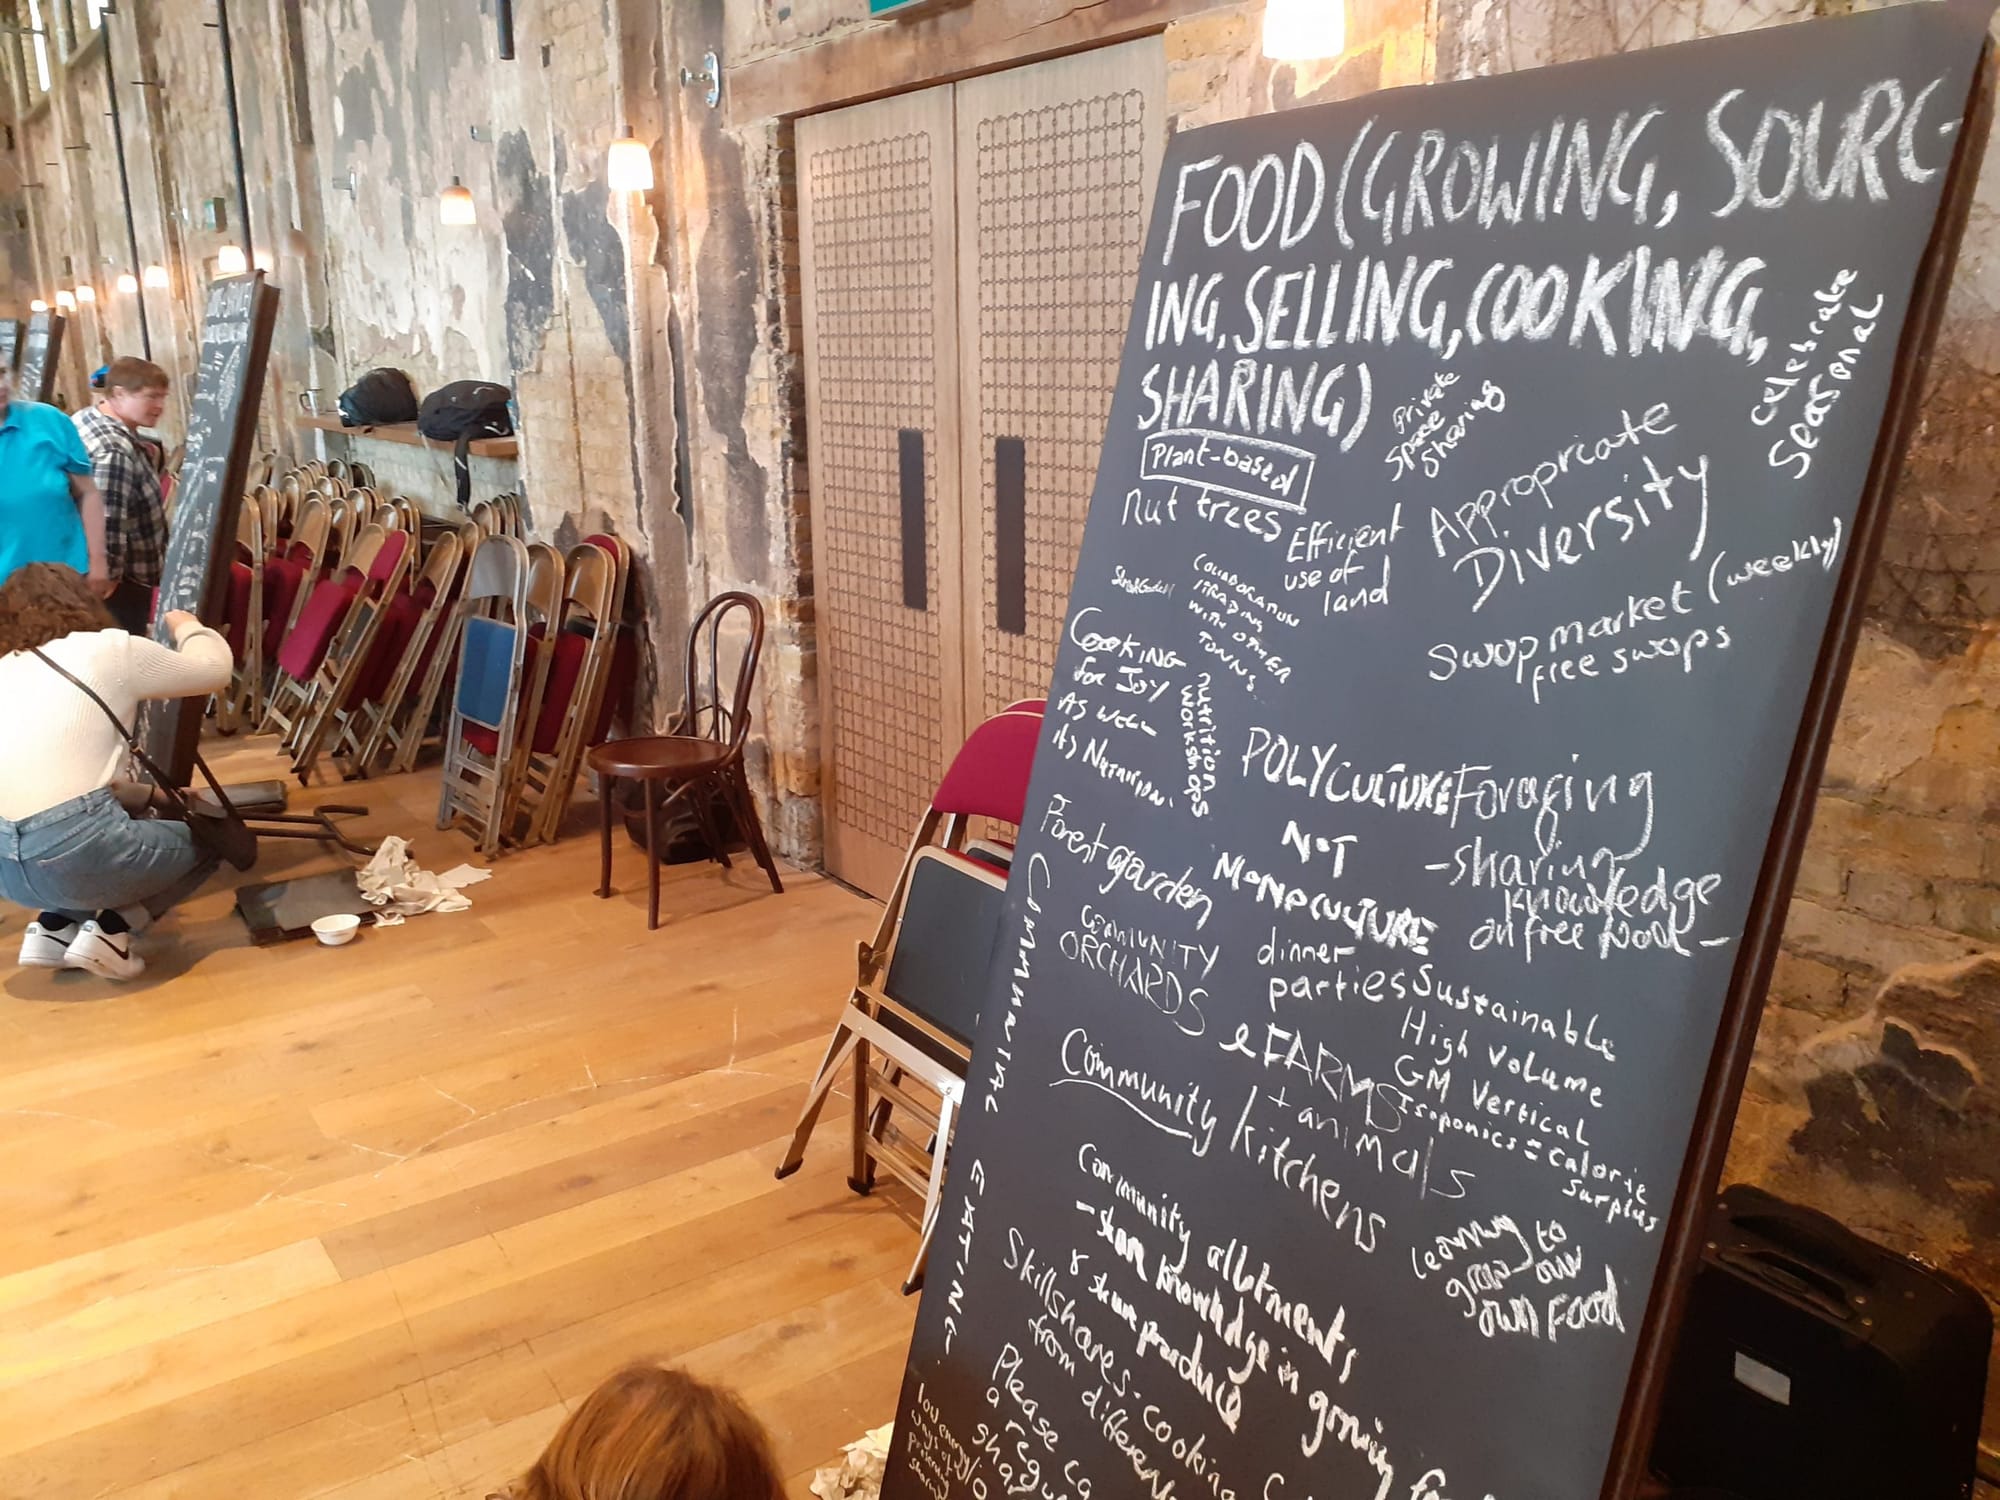 FOOD (GROWING, SOURC-
ING, SELLING, COOKING,
SHARING)
Celebrate
Seasonal
Private
Space
Sharing
Plant-based
nut trees
Efficient
use of
land
Appropriate
Diversity
Swop market (weekly)
free swops
COLLABORATION
/TRADING
WITH OTHER
TOWNS.
COOKING
for JOY
AS WELL
its NUTRITION.
nutrition
workshops
POLYCULTURE
NOT
MONOCULTURE
Foraging
- sharing
knowledge
on free food -
Forest garden
COMMUNITY
ORCHARDS
dinner
parties
Sustainable
High Volume
GM Vertical
Isoponics = Calorie
Surplus
e FARMS
+ animals
Community kitchens
COMMUNAL
EATING.
Community allotments
- share knowledge in growing
& share produce
learning to
grow our
own food
Skillshares - cooking
from different
Please
a regu
low energy
ways of
preserving